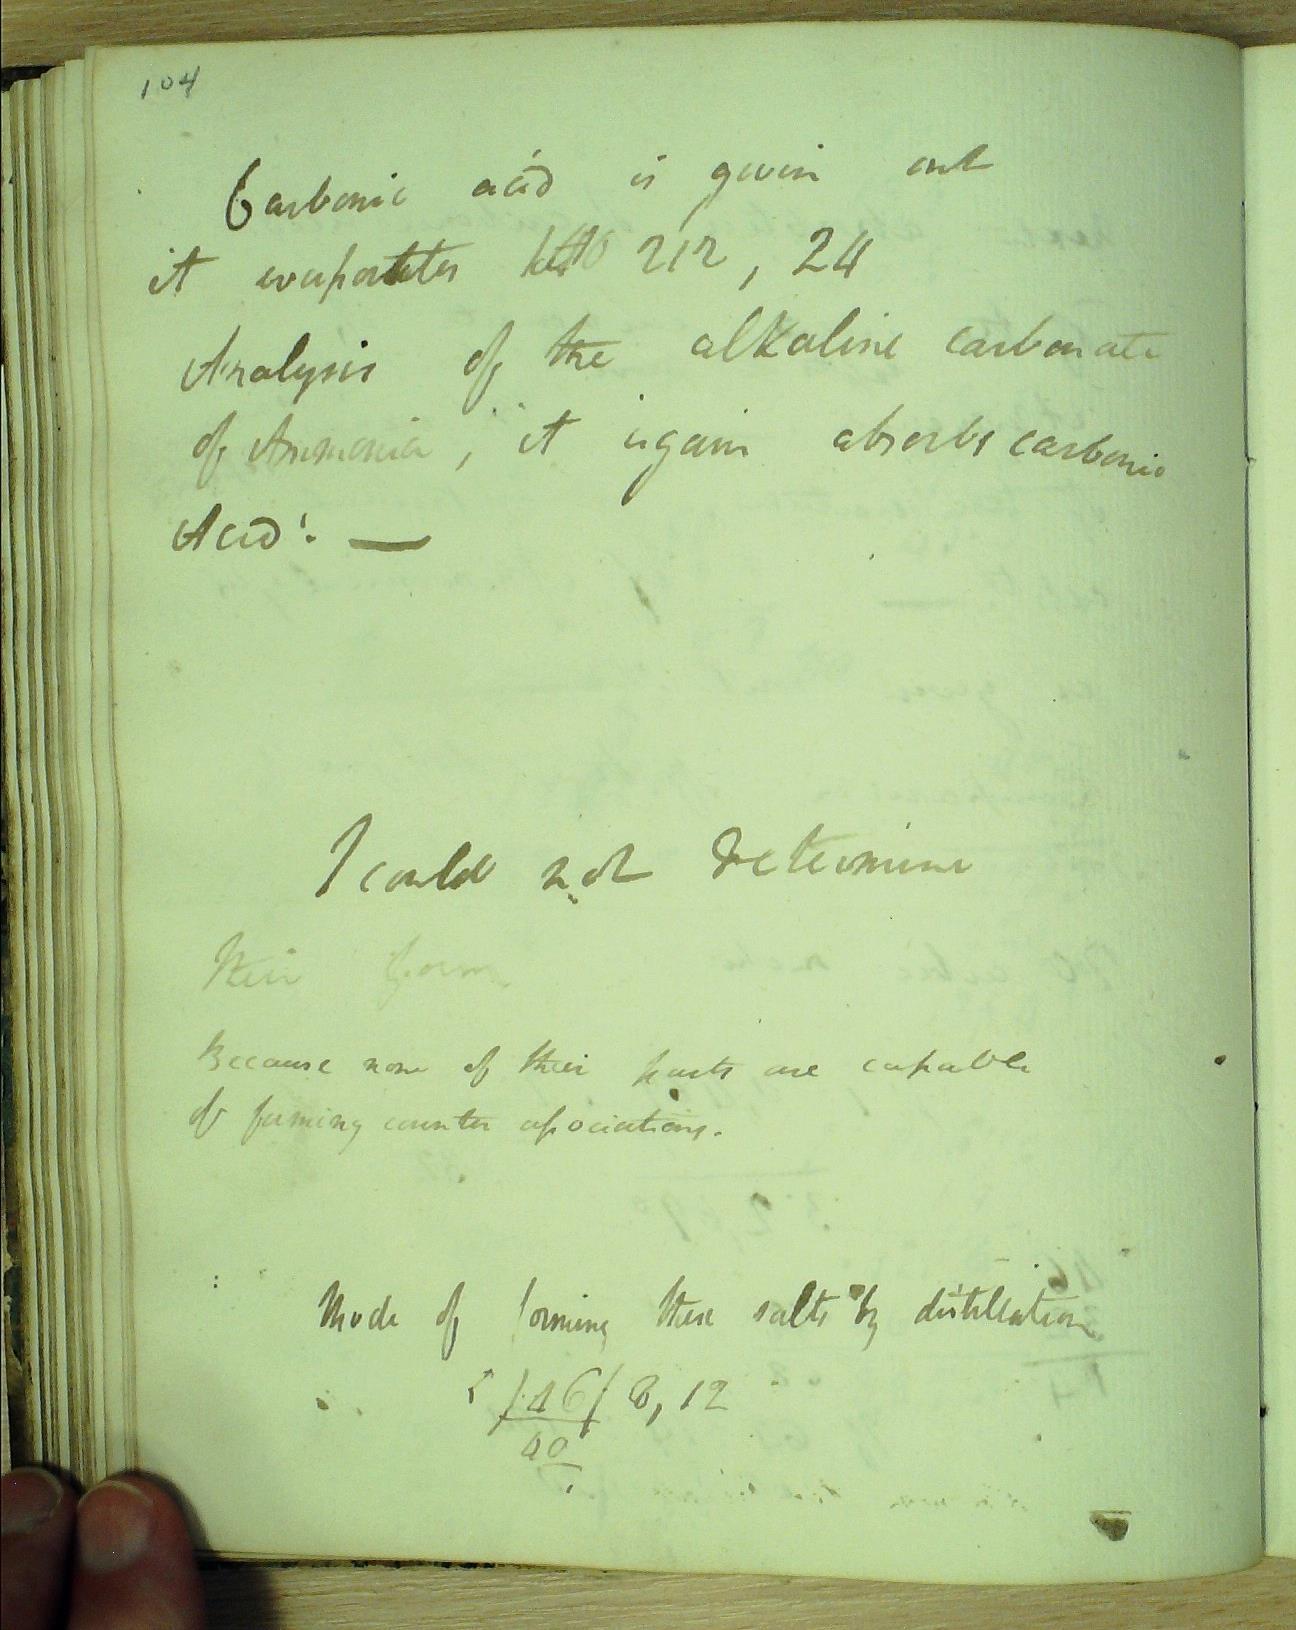 104
Carbonic acid is given out
it evaporates 212, 24
Analysis of the alkaline carbonate
of Ammonia, it again absorbs carbonic
Acid. —
I could not determine
their form
Because none of their parts are capable
of forming counter associations.
Mode of forming these salts by distillation
5 /46/ 8, 12
40